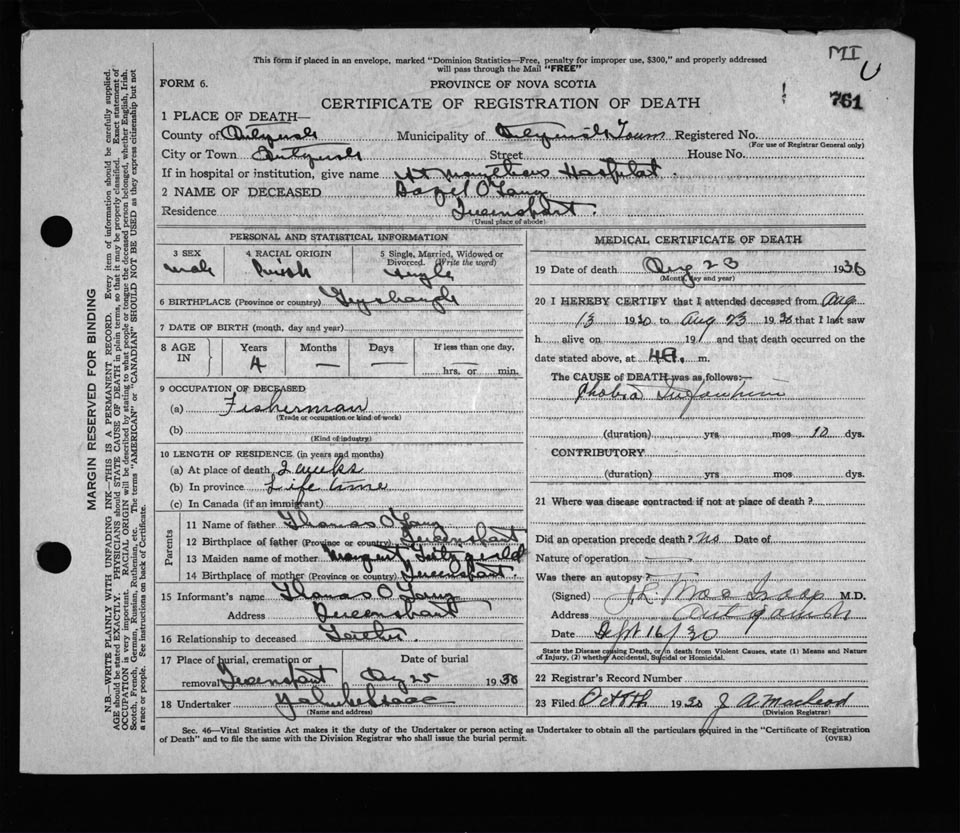 MI
U
This form if placed in an envelope, marked "Dominion Statistics—Free, penalty for improper use, $300," and properly addressed
will pass through the Mail "FREE"
FORM 6.
PROVINCE OF NOVA SCOTIA
761
CERTIFICATE OF REGISTRATION OF DEATH
1 PLACE OF DEATH—
County of Municipality of Town Registered No.
(For use of Registrar General only)
City or Town Street House No.
If in hospital or institution, give name St Hospital.
2 NAME OF DECEASED
Residence Queensport.
(Usual place of abode)
PERSONAL AND STATISTICAL INFORMATION
3 SEX 4 RACIAL ORIGIN 5 Single, Married, Widowed or Divorced. (Write the word)
male Irish Single
6 BIRTHPLACE (Province or country)
7 DATE OF BIRTH (month, day and year)
8 AGE IN Years Months Days If less than one day.
4 — — hrs. or min.
9 OCCUPATION OF DECEASED
(a) Fisherman
(Trade or occupation or kind of work)
(b)
(Kind of industry)
10 LENGTH OF RESIDENCE (in years and months)
(a) At place of death 2 weeks
(b) In province Life time
(c) In Canada (if an immigrant)
Parents
11 Name of father Thomas
12 Birthplace of father (Province or country) Queensport
13 Maiden name of mother Margaret Fitzgerald
14 Birthplace of mother (Province or country) Queensport.
15 Informant's name Thomas
Address Queensport
16 Relationship to deceased Father
17 Place of burial, cremation or removal Queensport Date of burial Aug 25 1930
18 Undertaker
(Name and address)
MEDICAL CERTIFICATE OF DEATH
19 Date of death Aug 23 1930
(Month, day and year)
20 I HEREBY CERTIFY that I attended deceased from Aug
13 1930 to Aug 23 1930 that I last saw
h alive on 19 and that death occurred on the
date stated above, at m.
The CAUSE of DEATH was as follows:—
Cholera Infantum
(duration) yrs mos 10 dys.
CONTRIBUTORY
(duration) yrs mos dys.
21 Where was disease contracted if not at place of death?
Did an operation precede death? No Date of
Nature of operation
Was there an autopsy?
(Signed) M.D.
Address Antigonish
Date Sept 16/30
State the Disease causing Death, or in death from Violent Causes, state (1) Means and Nature
of Injury, (2) whether Accidental, Suicidal or Homicidal.
22 Registrar's Record Number
23 Filed Oct 1930 J A Macleod
(Division Registrar)
Sec. 46—Vital Statistics Act makes it the duty of the Undertaker or person acting as Undertaker to obtain all the particulars required in the "Certificate of Registration
of Death" and to file the same with the Division Registrar who shall issue the burial permit. (OVER)
MARGIN RESERVED FOR BINDING
N.B.—WRITE PLAINLY WITH UNFADING INK—THIS IS A PERMANENT RECORD. Every item of information should be carefully supplied.
AGE should be stated EXACTLY. PHYSICIANS should STATE CAUSE OF DEATH in plain terms, so that it may be properly classified. Exact statement of
OCCUPATION is very important. RACIAL ORIGIN will be described by stating to what people or tongue the deceased person belonged, whether English, Irish,
Scotch, French, German, Russian, Ruthenian, etc. The terms "AMERICAN" or "CANADIAN" SHOULD NOT BE USED as they express citizenship but not
a race or people. See instructions on back of Certificate.